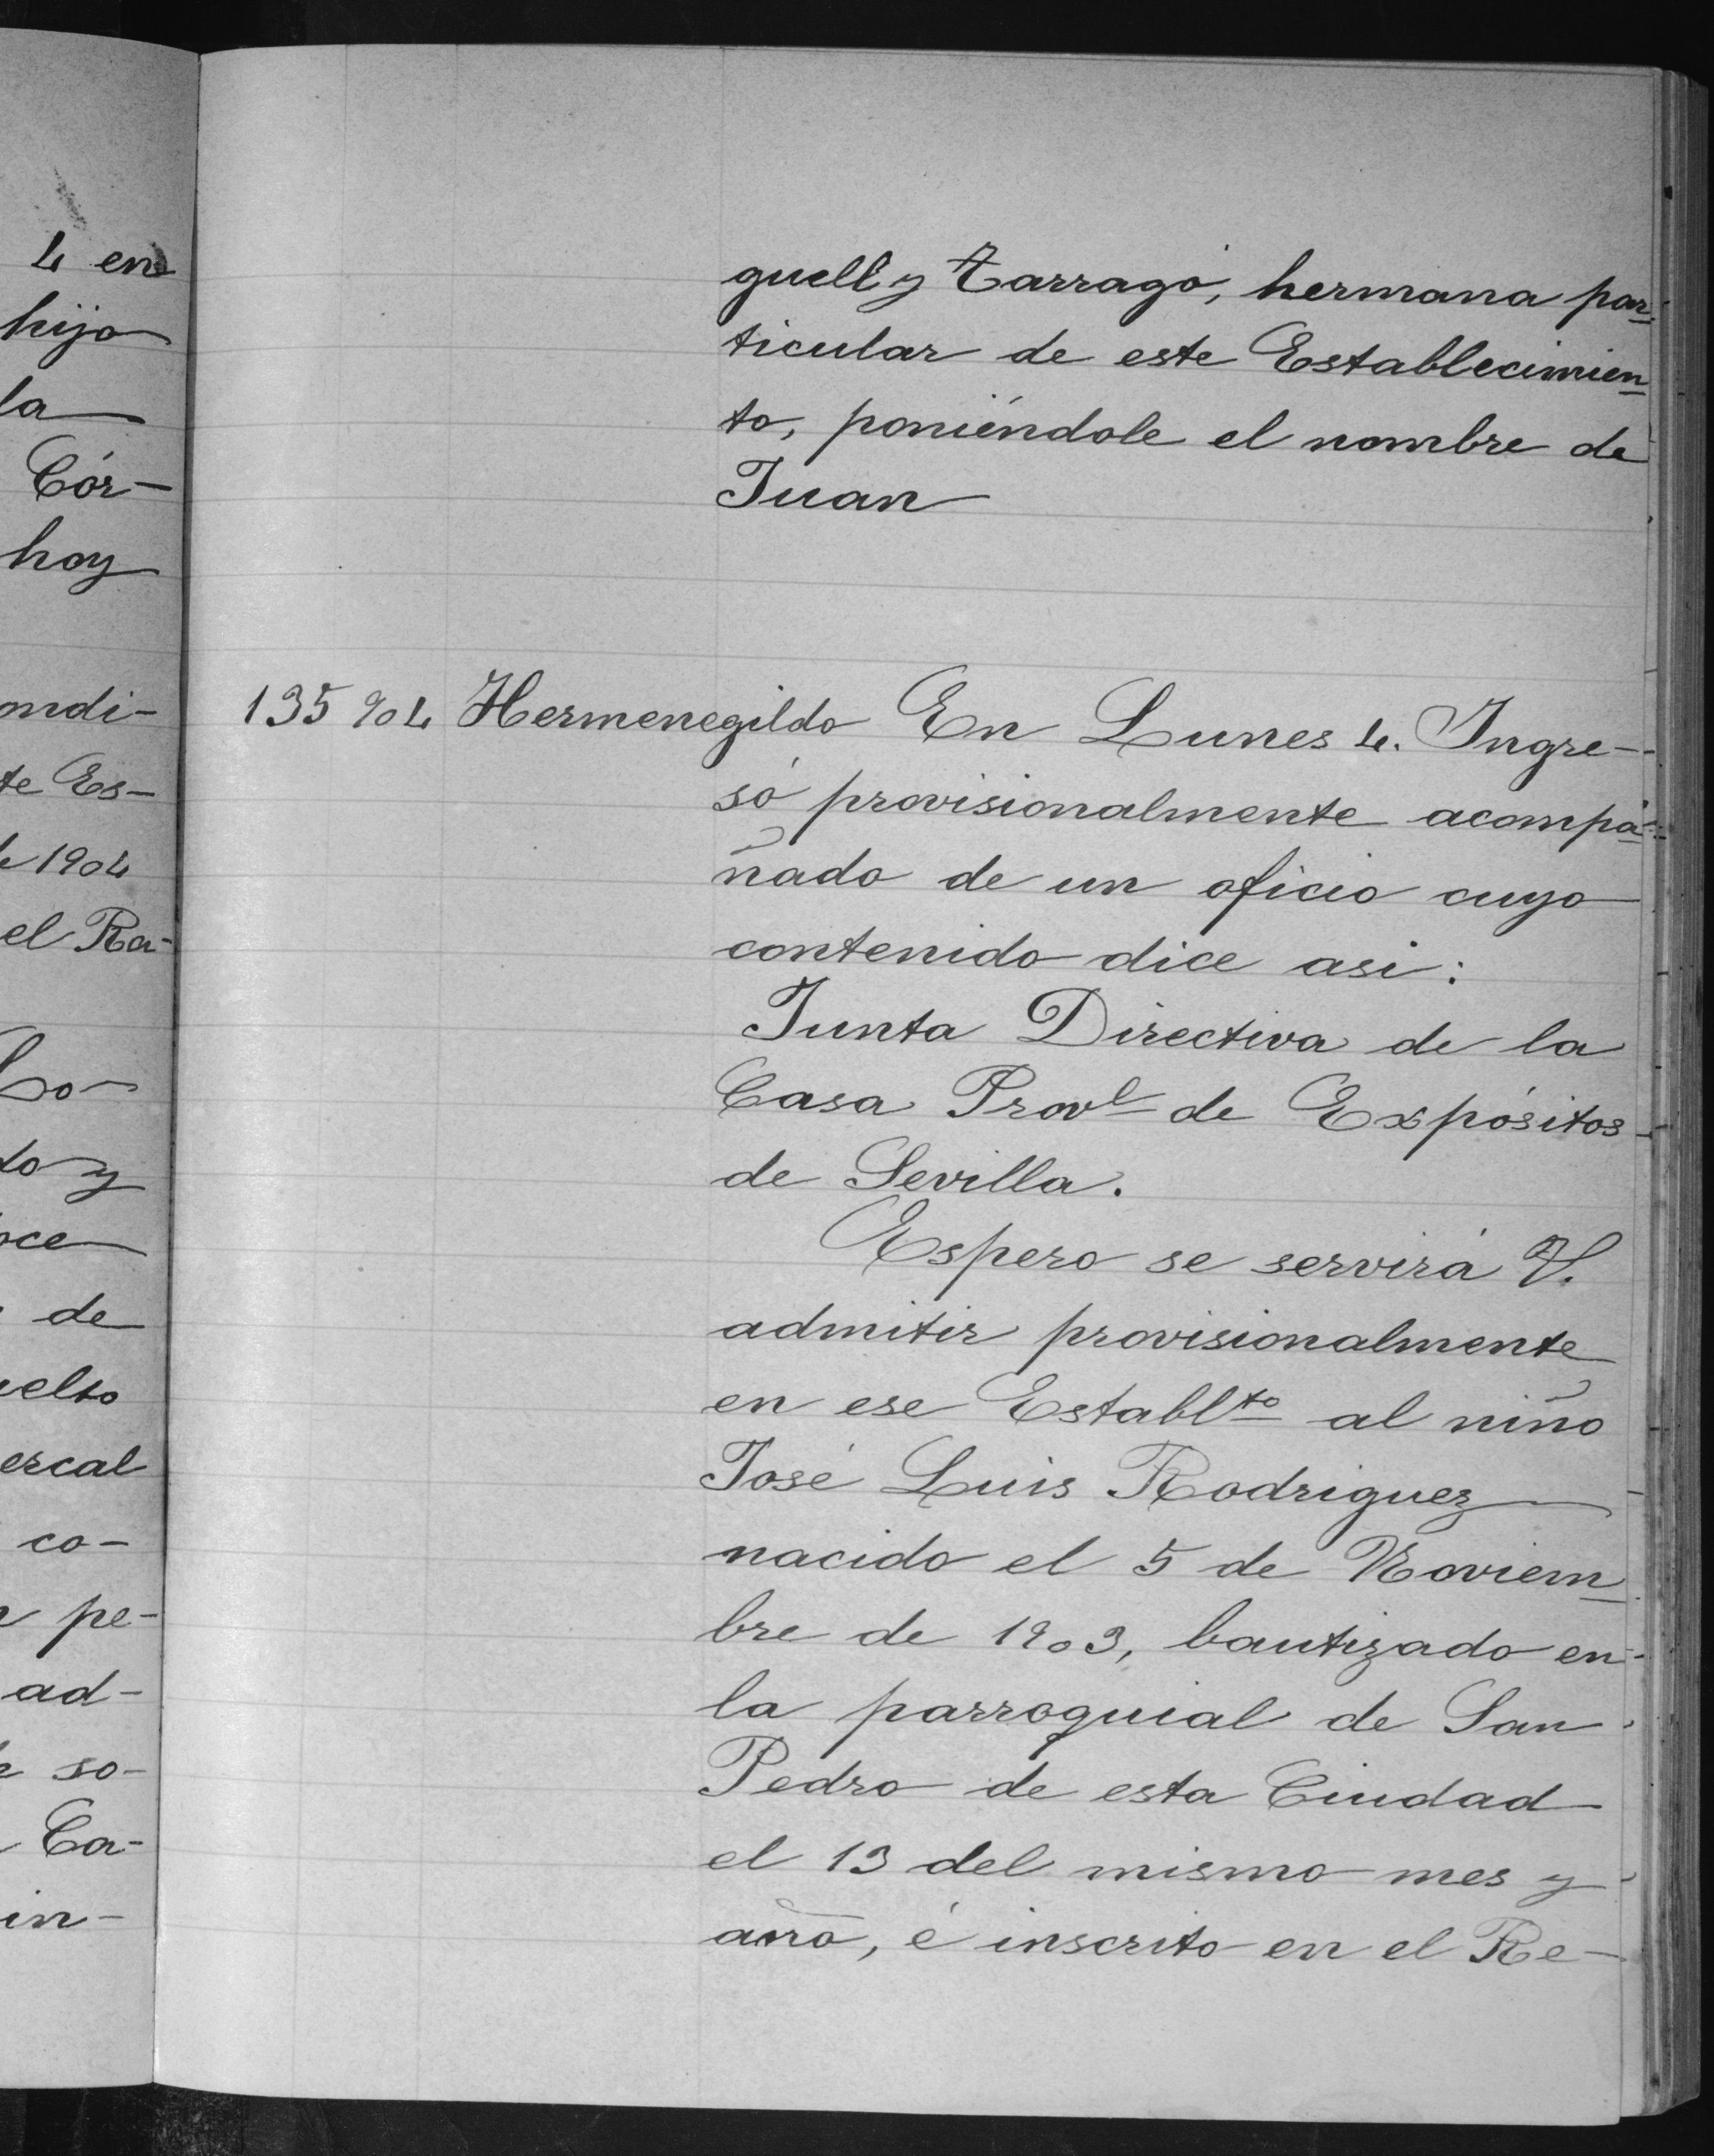 4 en
hijo
la
Cór-
hoy
ondi-
te Es-
1904
el Ra-
Lo-
to y
oce
de
uelto
ercal
co-
pe-
ad-
so-
Ca-
in-
guell y Tarragó, hermana par-
ticular de este Establecimien
to, poniéndole el nombre de
Juan
135 904 Hermenegildo En Lunes 4. Ingre-
só provisionalmente acompa-
ñado de un oficio cuyo
contenido dice asi:
Junta Directiva de la
Casa Provl de Expósitos
de Sevilla.
Espero se servirá V.
admitir provisionalmente
en ese Establto al niño
José Luis Rodriguez
nacido el 5 de Noviem
bre de 1903, bautizado en
la parroquial de San
Pedro de esta Ciudad
el 13 del mismo mes y
año, é inscrito en el Re-